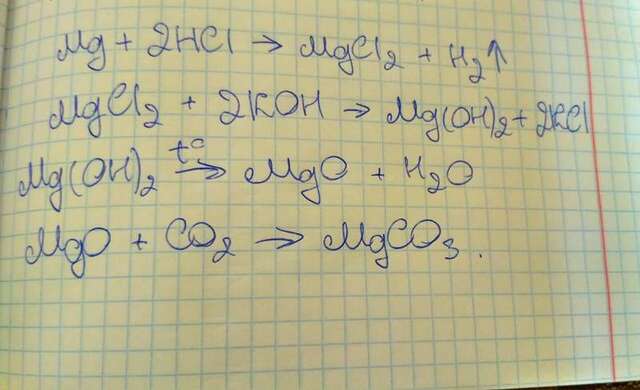 Mg + 2HCl → MgCl₂ + H₂↑
MgCl₂ + 2KOH → Mg(OH)₂ + 2KCl
Mg(OH)₂ t°→ MgO + H₂O
MgO + CO₂ → MgCO₃.